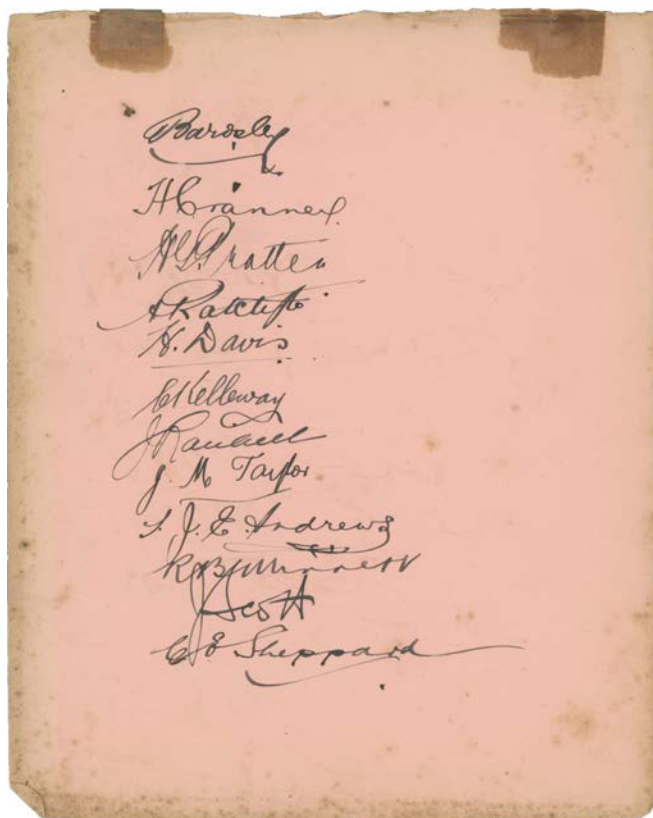 Bardsley
H Cranney
H G Pratten
A Ratcliffe
H. Davis
C Kelleway
J Randell
J M Taylor
T. J. E. Andrews
R B Minnett
J Scott
C E Sheppard